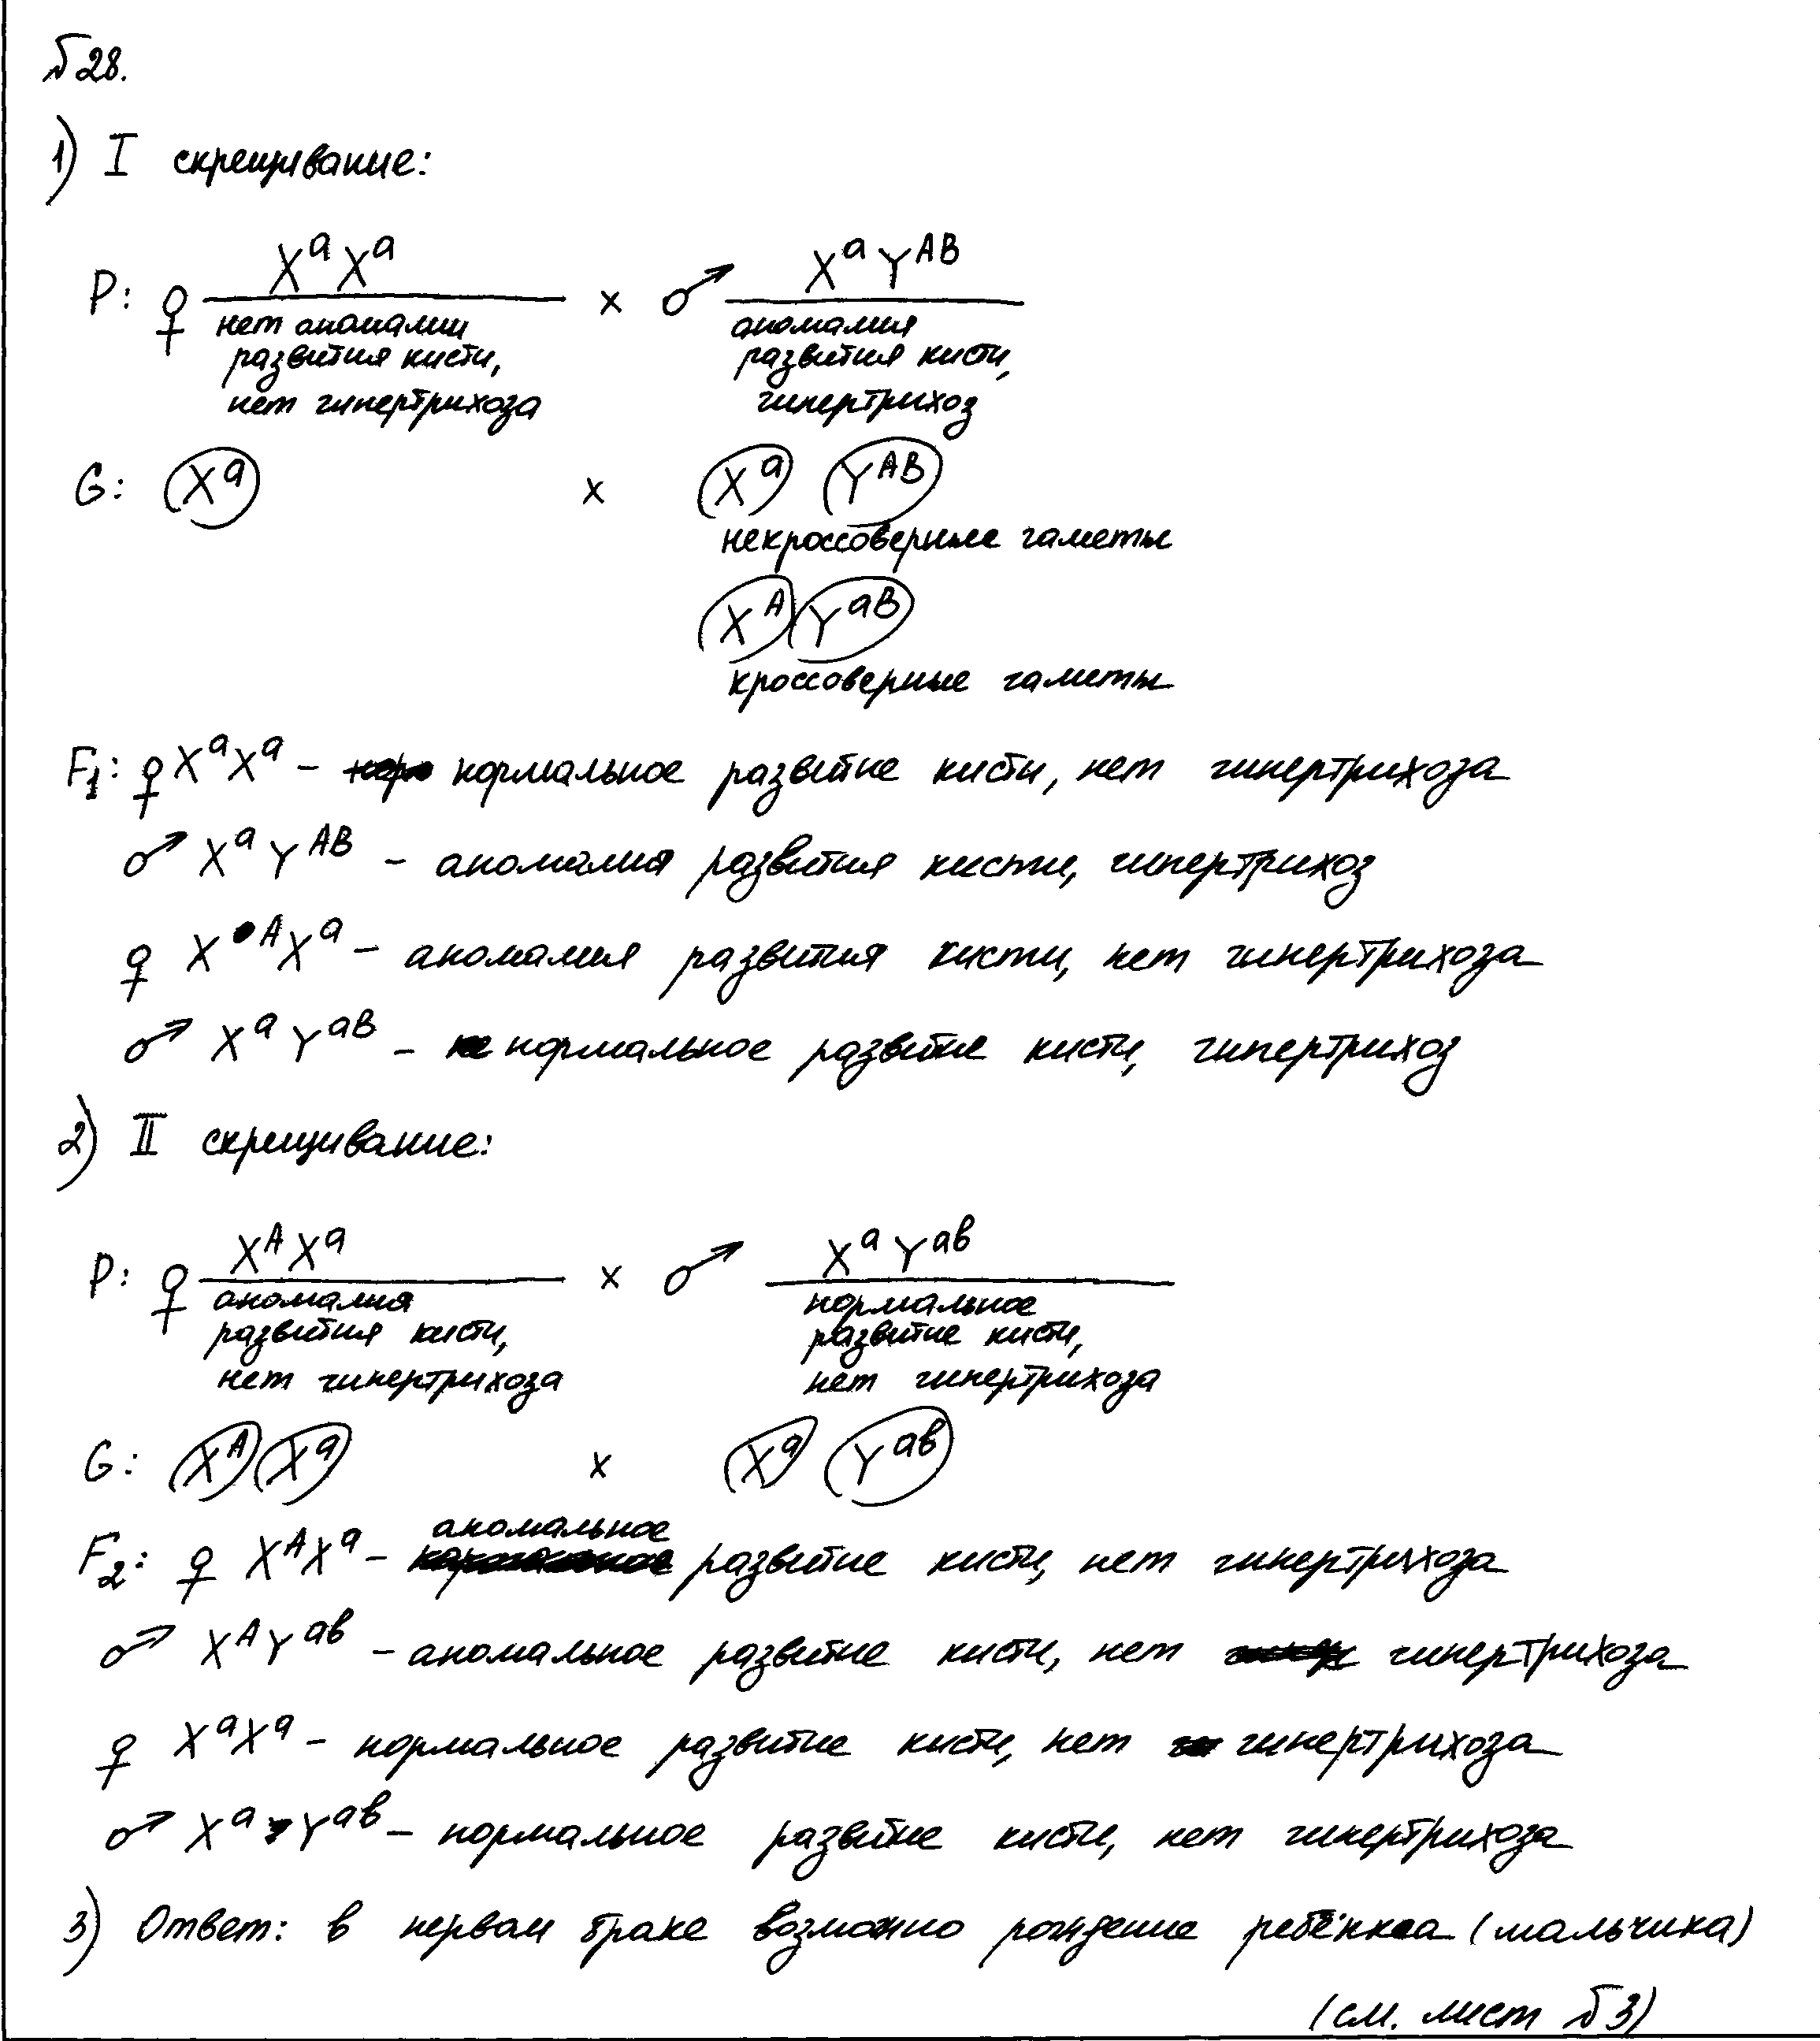 №28.
1) I скрещивание:
P: ♀ XᵃXᵃ x ♂ XᵃYᴬᴮ
нет аномалии аномалия
развития кисти, развития кисти,
нет гипертрихоза гипертрихоз
G: Xᵃ x Xᵃ Yᴬᴮ
некроссоверные гаметы
Xᴬ Yᵃᴮ
кроссоверные гаметы
F₁: ♀ XᵃXᵃ – нормальное развитие кисти, нет гипертрихоза
♂ XᵃYᴬᴮ – аномалия развития кисти, гипертрихоз
♀ XᴬXᵃ – аномалия развития кисти, нет гипертрихоза
♂ XᵃYᵃᴮ – нормальное развитие кисти, гипертрихоз
2) II скрещивание:
P: ♀ XᴬXᵃ x ♂ XᵃYᵃᵇ
аномалия нормальное
развития кисти, развитие кисти,
нет гипертрихоза нет гипертрихоза
G: Xᴬ Xᵃ x Xᵃ Yᵃᵇ
F₂: ♀ XᴬXᵃ – аномальное развитие кисти, нет гипертрихоза
♂ XᴬYᵃᵇ – аномальное развитие кисти, нет гипертрихоза
♀ XᵃXᵃ – нормальное развитие кисти, нет гипертрихоза
♂ XᵃYᵃᵇ – нормальное развитие кисти, нет гипертрихоза
3) Ответ: в первом браке возможно рождение ребёнка (мальчика)
(см. лист №3)